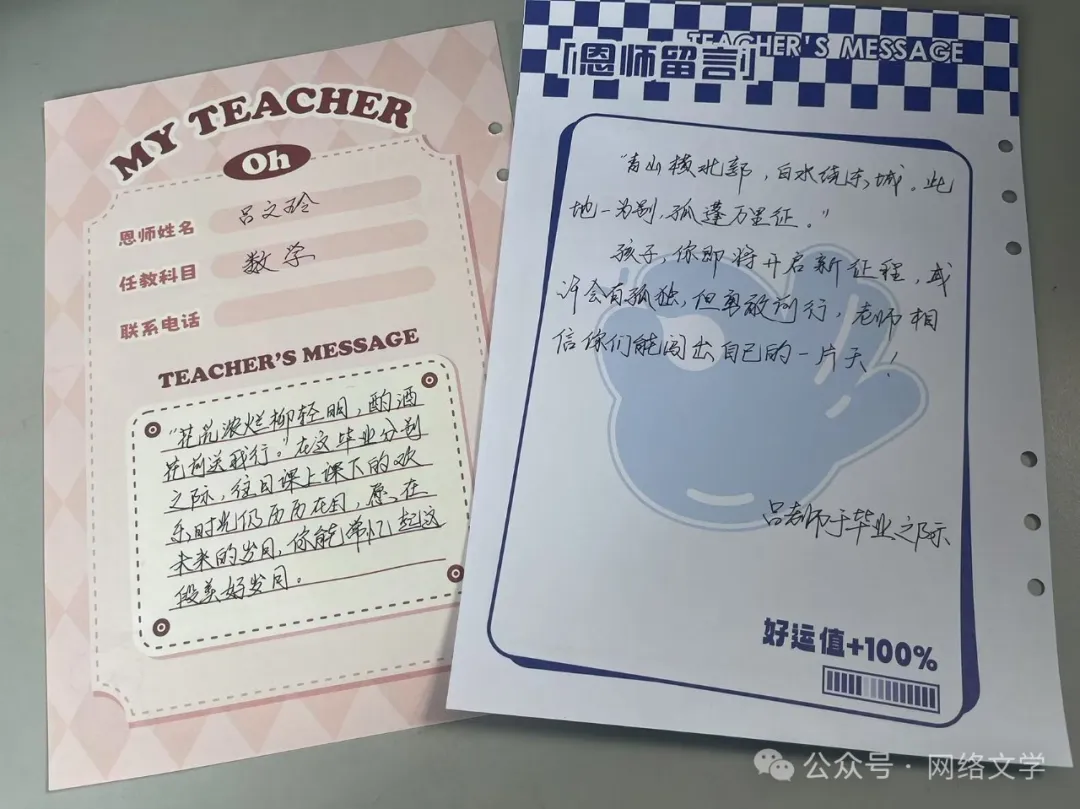 MY TEACHER
Oh
恩师姓名
吕文玲
任教科目
数学
联系电话
TEACHER'S MESSAGE
"花光浓烂柳轻明，酌酒
花前送我行。"在这毕业分别
之际，往日课上课下的欢
乐时光仍历历在目，愿在
未来的岁月，你能常忆起这
段美好岁月。
TEACHER'S MESSAGE
「恩师留言」
"青山横北郭，白水绕东城。此
地一为别，孤蓬万里征。"
孩子，你即将开启新征程，或
许会有孤独，但勇敢前行，老师相
信你们能闯出自己的一片天！
吕老师于毕业之际
好运值+100%
公众号·网络文学